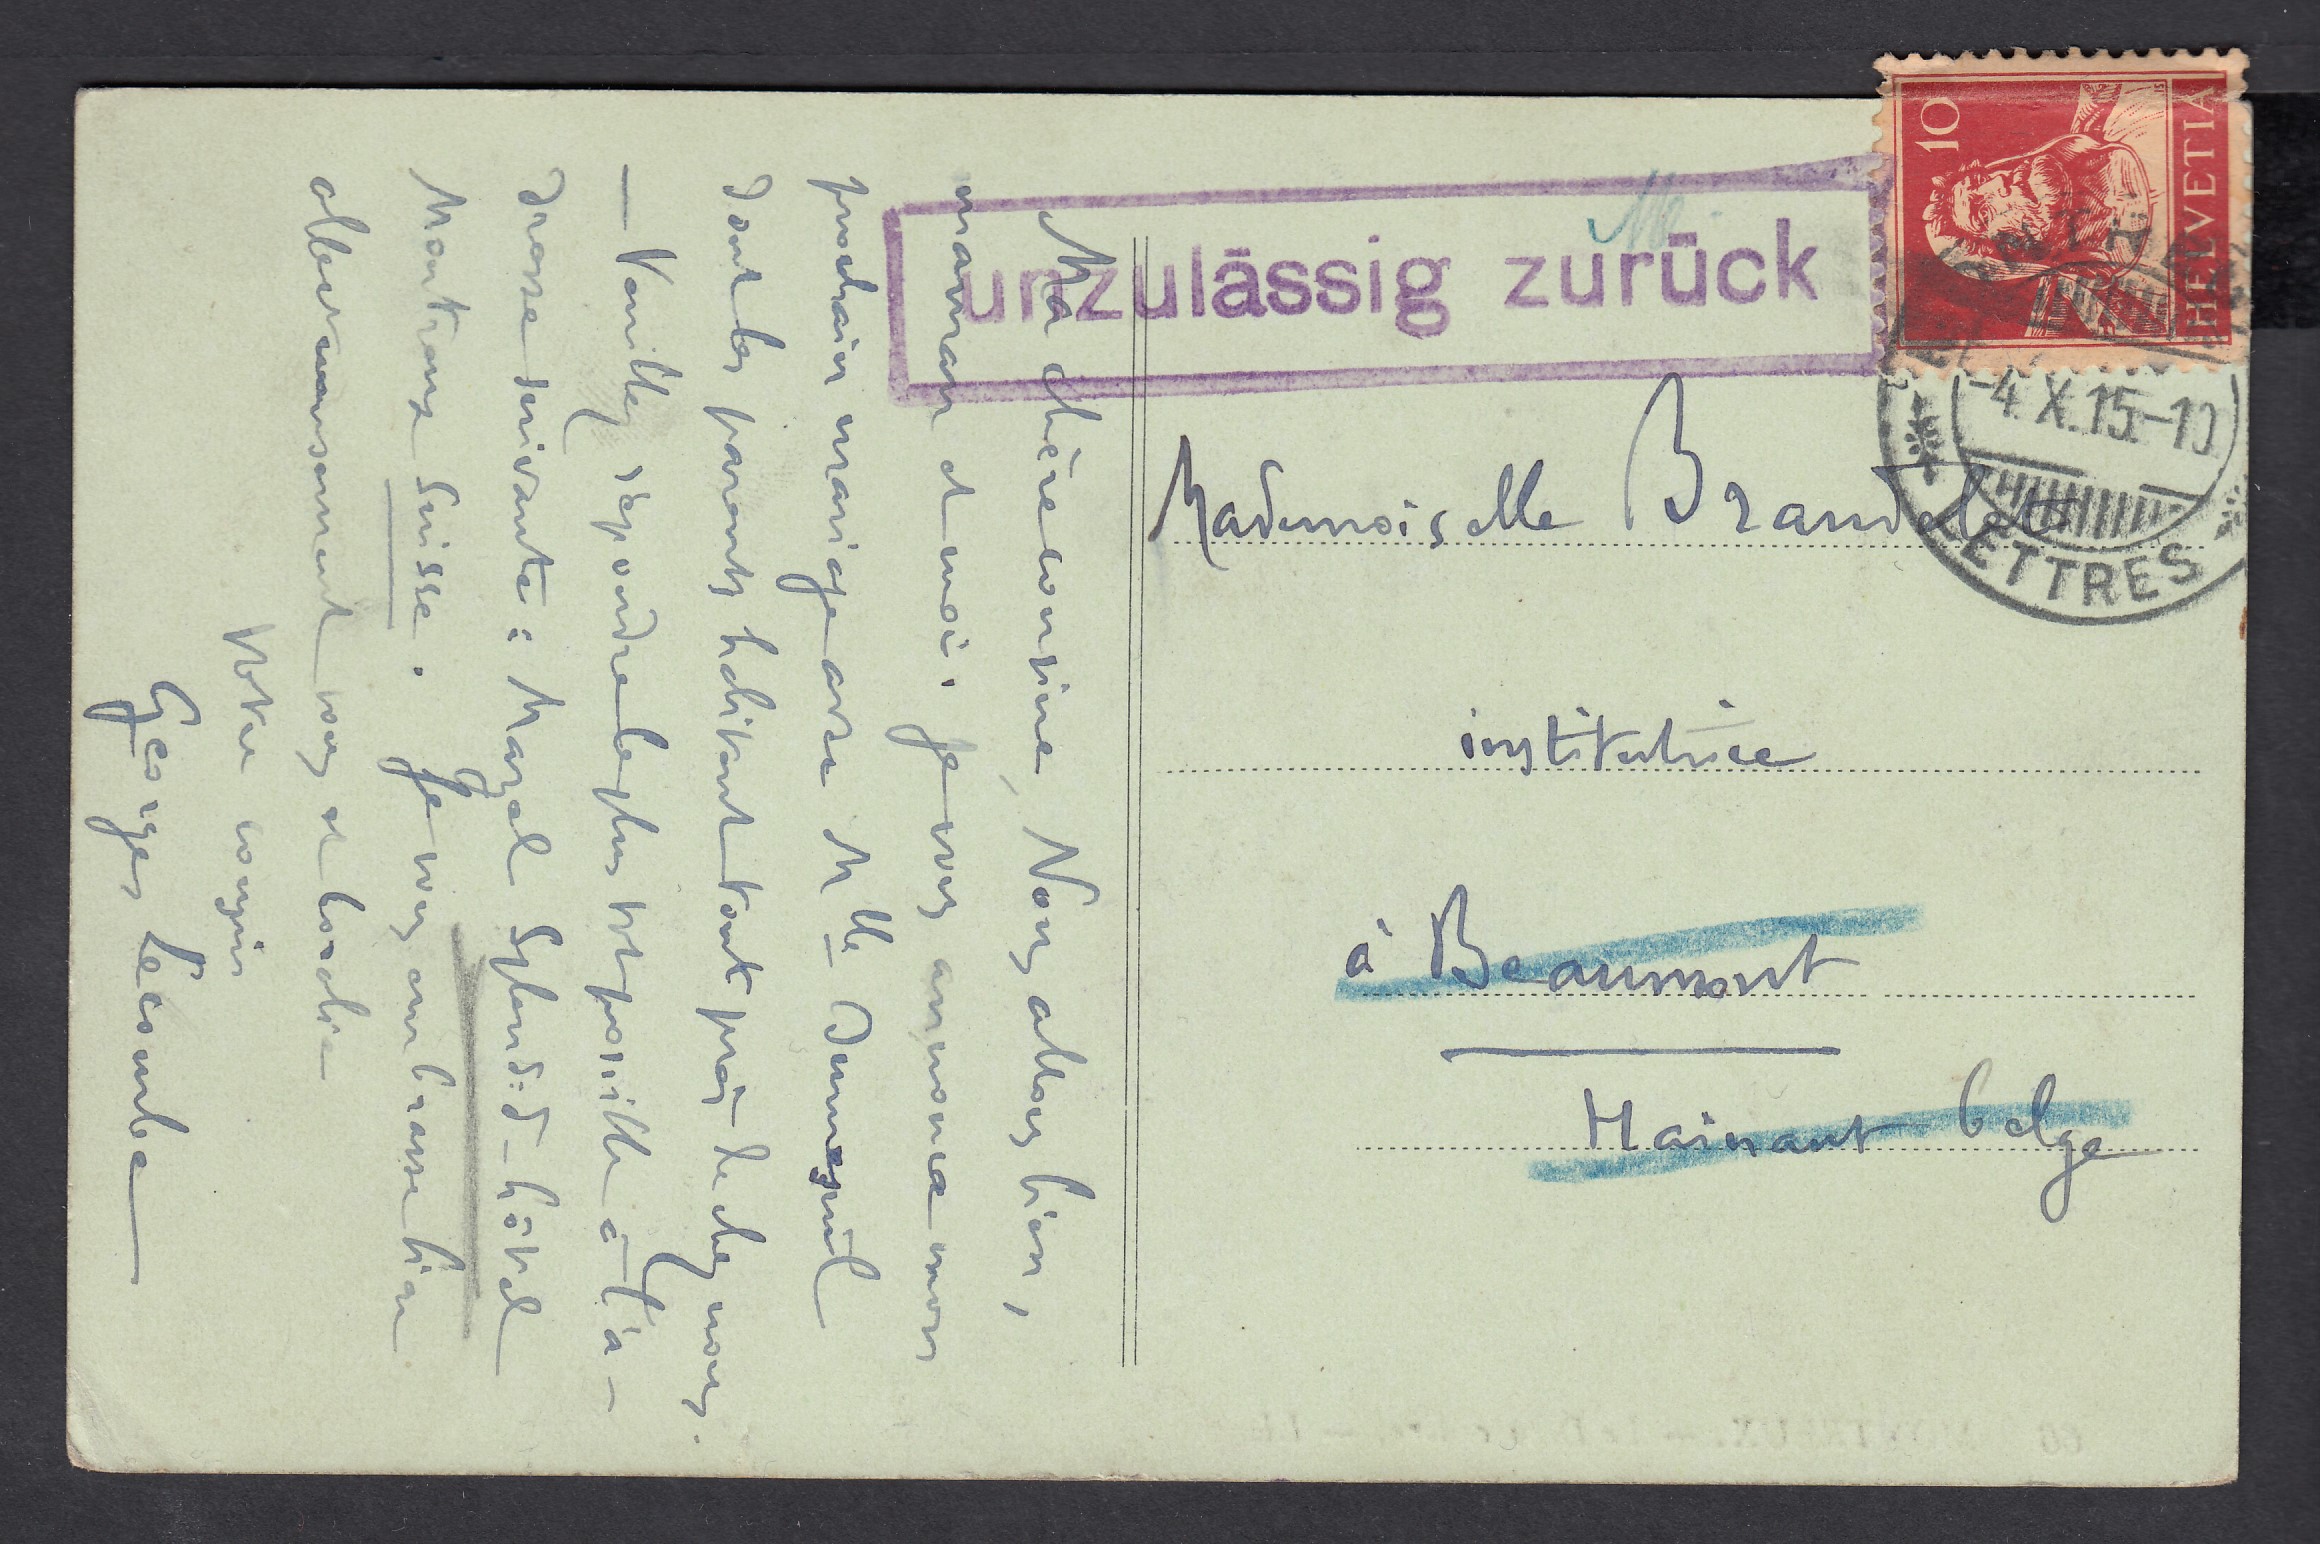 unzulässig zurück
10
HELVETIA
-4.X.15.-10
LETTRES
Mademoiselle Brandelet
institutrice
à Beaumont
Hainaut belge
Ma chère cousine, Nous allons bien,
maman et moi. Je vous annonce mon
prochain mariage avec Mlle
dont les parents habitent tout près de chez nous.
— Veuillez répondre le plus tôt possible à l'a-
dresse suivante: Splendid-hôtel
Montreux Suisse. Je vous embrasse bien
affectueusement vous et
Votre cousin
Georges Lecomte